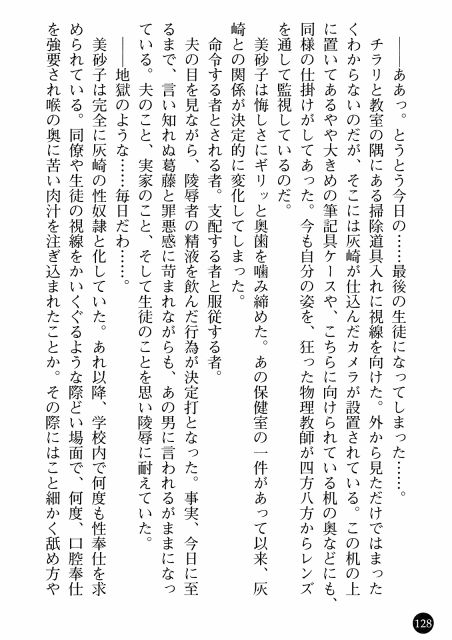 ――ああっ。とうとう今日の……最後の生徒になってしまった……。
チラリと教室の隅にある掃除道具入れに視線を向けた。外から見ただけではまった
くわからないのだが、そこには灰崎が仕込んだカメラが設置されている。この机の上
に置いてあるやや大きめの筆記具ケースや、こちらに向けられている机の奥などにも、
同様の仕掛けがしてあった。今も自分の姿を、狂った物理教師が四方八方からレンズ
を通して監視しているのだ。
美砂子は悔しさにギリッと奥歯を噛み締めた。あの保健室の一件があって以来、灰
崎との関係が決定的に変化してしまった。
命令する者とされる者。支配する者と服従する者。
夫の目を見ながら、陵辱者の精液を飲んだ行為が決定打となった。事実、今日に至
るまで、言い知れぬ葛藤と罪悪感に苛まれながらも、あの男に言われるがままになっ
ている。夫のこと、実家のこと、そして生徒のことを思い陵辱に耐えていた。
――地獄のような……毎日だわ……。
美砂子は完全に灰崎の性奴隷と化していた。あれ以降、学校内で何度も性奉仕を求
められている。同僚や生徒の視線をかいくぐるような際どい場面で、何度、口腔奉仕
を強要され喉の奥に苦い肉汁を注ぎ込まれたことか。その際にはこと細かく舐め方や
128